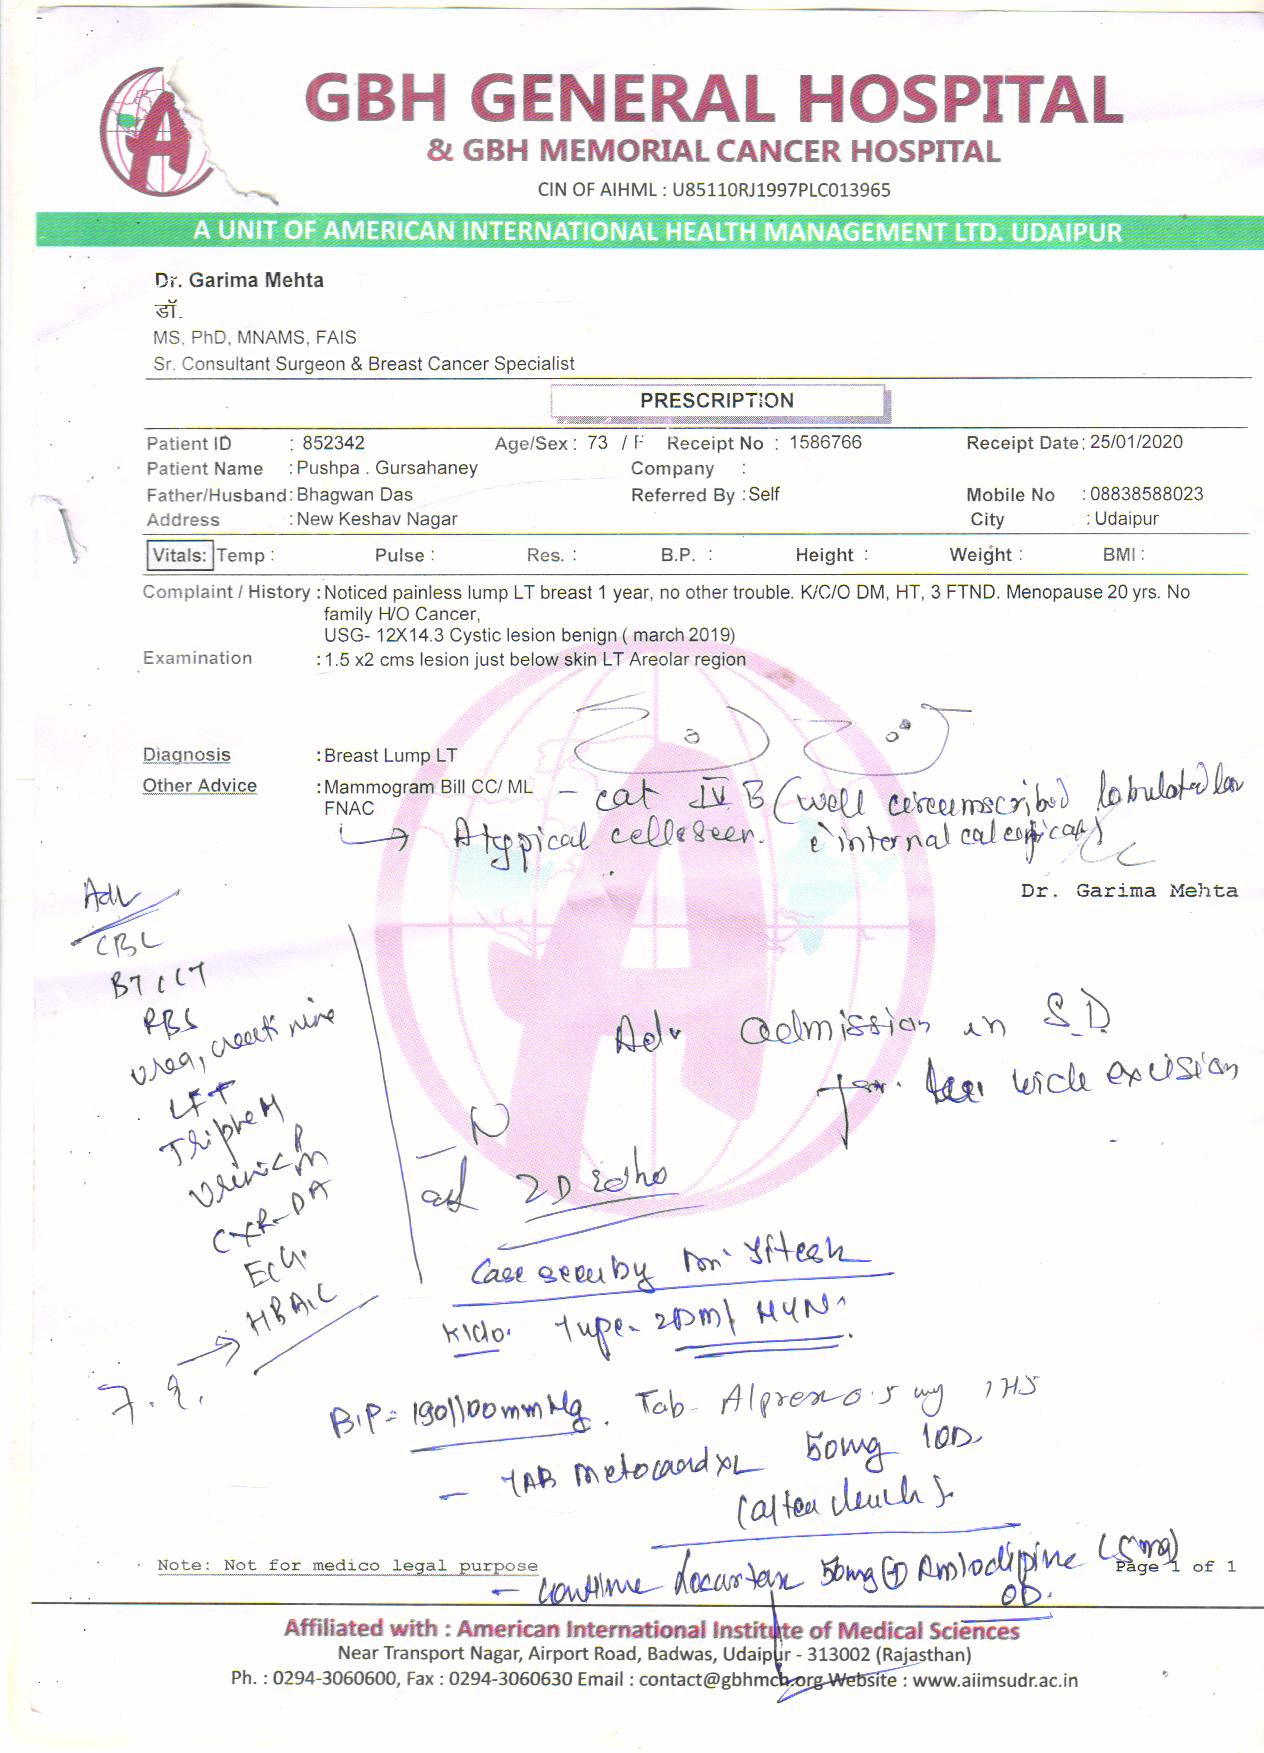 GBH GENERAL HOSPITAL
& GBH MEMORIAL CANCER HOSPITAL
CIN OF AIHML : U85110RJ1997PLC013965
A UNIT OF AMERICAN INTERNATIONAL HEALTH MANAGEMENT LTD. UDAIPUR
Dr. Garima Mehta
डॉ.
MS, PhD, MNAMS, FAIS
Sr. Consultant Surgeon & Breast Cancer Specialist
PRESCRIPTION
Patient ID : 852342 Age/Sex : 73 / F Receipt No : 1586766 Receipt Date: 25/01/2020
Patient Name : Pushpa . Gursahaney Company :
Father/Husband: Bhagwan Das Referred By : Self Mobile No : 08838588023
Address : New Keshav Nagar City : Udaipur
Vitals: Temp : Pulse : Res. : B.P. : Height : Weight : BMI :
Complaint / History : Noticed painless lump LT breast 1 year, no other trouble. K/C/O DM, HT, 3 FTND. Menopause 20 yrs. No
family H/O Cancer,
USG- 12X14.3 Cystic lesion benign ( march 2019)
Examination : 1.5 x2 cms lesion just below skin LT Areolar region
Diagnosis : Breast Lump LT
Other Advice : Mammogram Bill CC/ ML – cat IV B (well circumscribed lobulated
FNAC
→ Atypical cells seen. internal
Dr. Garima Mehta
Adv
CBC
BT CT
RBS
urea, creatinine
LFT
Triple H
Urine
CXR-PA
ECG.
HBA1C
7.9. →
Adv admission in S.D.
for wide excision
– N
adv 2D Echo
Case seen by Dr. Jitesh
K/c/o. Type- 2DM/ HTN.
B.P = 190/100 mmHg. Tab- Alprex 0.5 mg 1 HS
– TAB Metocard XL 50mg 1 OD
(after lunch).
– Continue Losartan 50mg + Amlodipine (5mg)
OD.
Note: Not for medico legal purpose Page 1 of 1
Affiliated with : American International Institute of Medical Sciences
Near Transport Nagar, Airport Road, Badwas, Udaipur - 313002 (Rajasthan)
Ph. : 0294-3060600, Fax : 0294-3060630 Email : contact@gbhmch.org Website : www.aiimsudr.ac.in